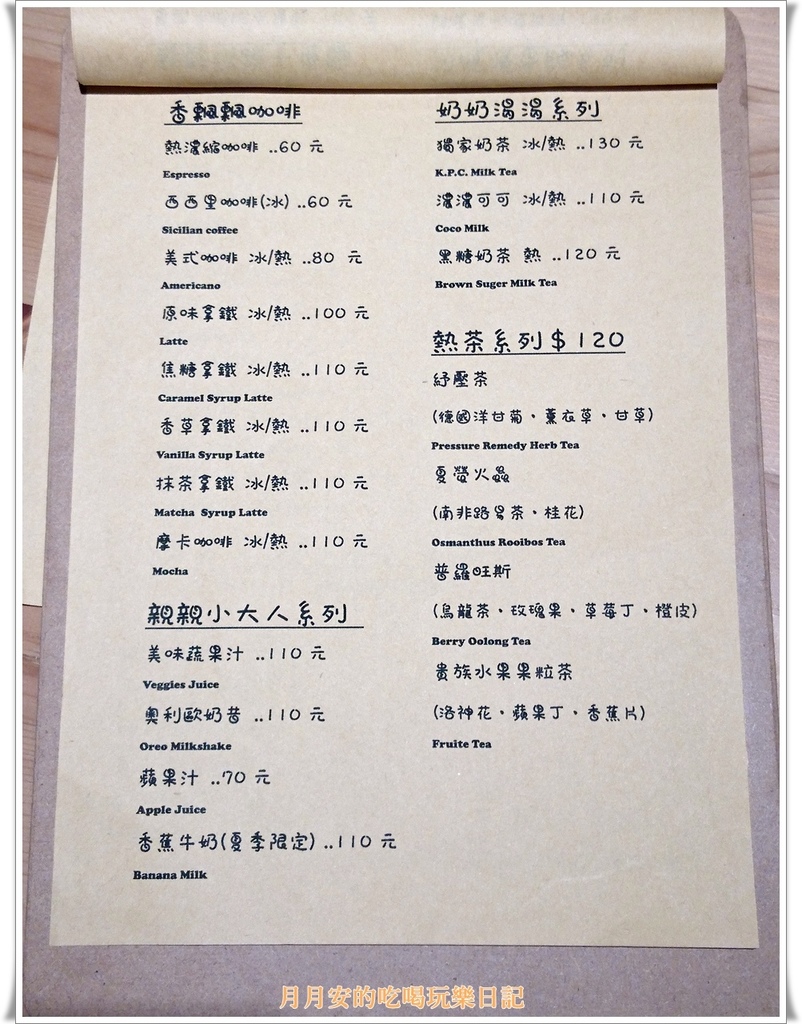 香飄飄咖啡
熱濃縮咖啡 ..60 元
Espresso
西西里咖啡(冰) ..60 元
Sicilian coffee
美式咖啡 冰/熱 ..80 元
Americano
原味拿鐵 冰/熱 ..100 元
Latte
焦糖拿鐵 冰/熱 ..110 元
Caramel Syrup Latte
香草拿鐵 冰/熱 ..110 元
Vanilla Syrup Latte
抹茶拿鐵 冰/熱 ..110 元
Matcha Syrup Latte
摩卡咖啡 冰/熱 ..110 元
Mocha
親親小大人系列
美味蔬果汁 ..110 元
Veggies Juice
奧利歐奶昔 ..110 元
Oreo Milkshake
蘋果汁 ..70 元
Apple Juice
香蕉牛奶(夏季限定) ..110 元
Banana Milk
奶奶濄濄系列
獨家奶茶 冰/熱 ..130 元
K.P.C. Milk Tea
濃濃可可 冰/熱 ..110 元
Coco Milk
黑糖奶茶 熱 ..120 元
Brown Suger Milk Tea
熱茶系列$120
紓壓茶
(德國洋甘菊、薰衣草、甘草)
Pressure Remedy Herb Tea
夏螢火蟲
(南非路易茶、桂花)
Osmanthus Rooibos Tea
普羅旺斯
(烏龍茶、玫瑰果、草莓丁、橙皮)
Berry Oolong Tea
貴族水果果粒茶
(洛神花、蘋果丁、香蕉片)
Fruite Tea
月月安的吃喝玩樂日記